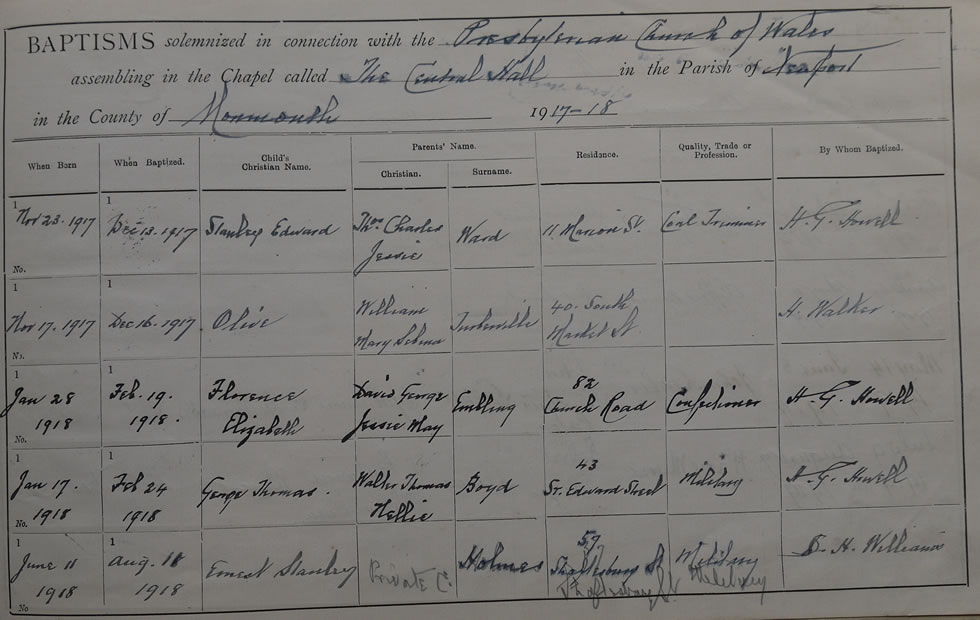 BAPTISMS solemnized in connection with the Presbyterian Church of Wales
assembling in the Chapel called The Central Hall in the Parish of Newport
in the County of Monmouth 1917-18
When Born When Baptized. Child's Christian Name. Parents' Name. Christian. Surname. Residence. Quality, Trade or Profession. By Whom Baptized.
1 1
Nov 23. 1917 Dec 13. 1917 Stanley Edward Thos. Charles Ward 11 Marion St. Coal Trimmer H. G. Howell
Jessie
No.
1 1
Nov 17. 1917 Dec 16. 1917 Olive William Turberville 40. South H. Walker
Mary Selina Market St.
No.
1 1
Jan 28 Feb. 19. Florence David George Embling 82 Confectioner H. G. Howell
1918 1918. Elizabeth Jessie May Church Road
No.
1 1
Jan 17. Feb 24 George Thomas. Walter Thomas Boyd 43 Military H. G. Howell
No. 1918 1918 Nellie St. Edward Street
1 1
June 11 Aug. 18 Ernest Stanley Private Holmes 57 Shaftesbury St Military D. H. Williams
1918 1918 Shaftesbury St. Military
No